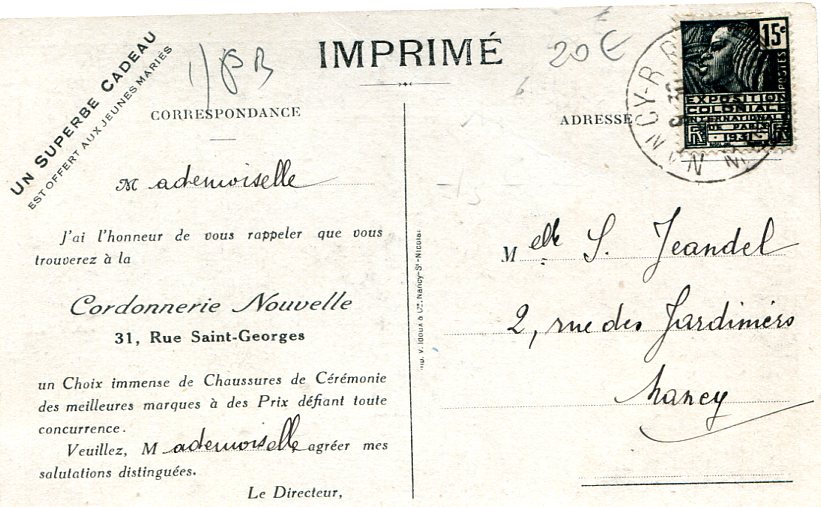 UN SUPERBE CADEAU
EST OFFERT AUX JEUNES MARIÉS
IMPRIMÉ
20€
15c
POSTES
EXPOSITION
COLONIALE
INTERNATIONALE
DE PARIS
1931
NANCY-R.P
CORRESPONDANCE
Mademoiselle
J'ai l'honneur de vous rappeler que vous
trouverez à la
Cordonnerie Nouvelle
31, Rue Saint-Georges
un Choix immense de Chaussures de Cérémonie
des meilleures marques à des Prix défiant toute
concurrence.
Veuillez, Mademoiselle agréer mes
salutations distinguées.
Le Directeur,
Imp. V. Idoux & Cie, Nancy-St-Nicolas
ADRESSE
Melle S. Jeandel
2, rue des Jardiniers
Nancy